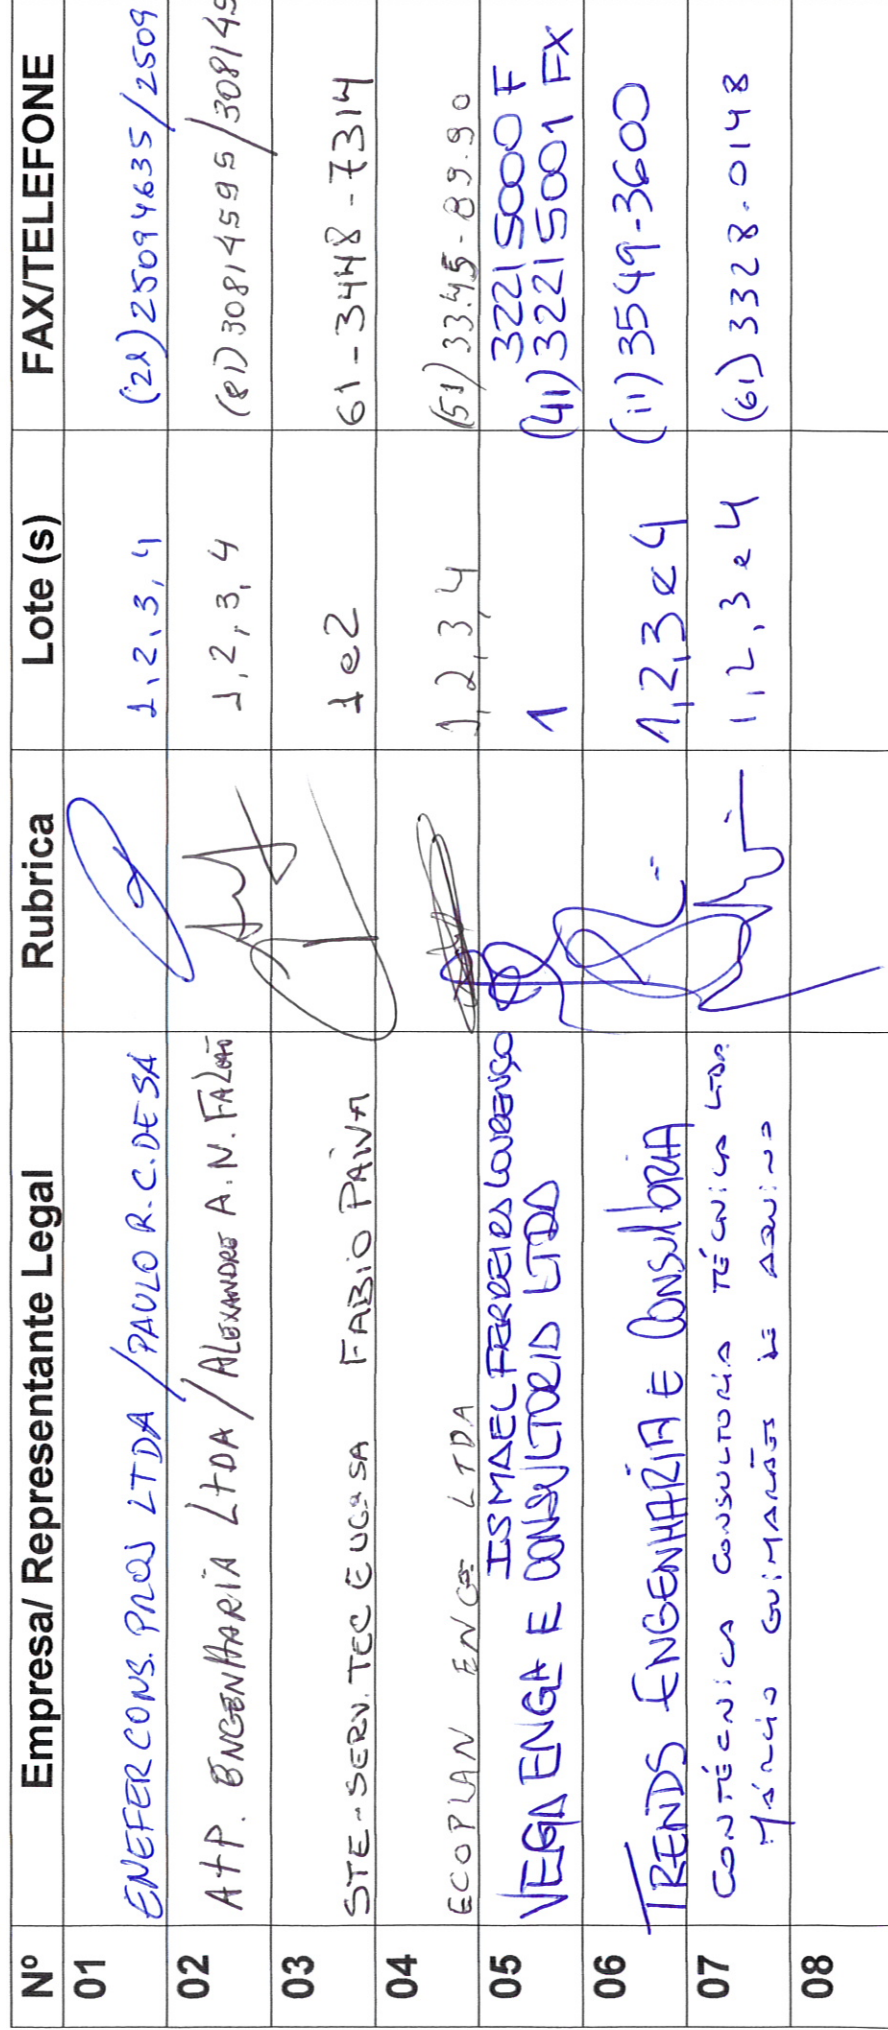 Nº Empresa/ Representante Legal Rubrica Lote (s) FAX/TELEFONE
01 ENEFER CONS. PROJ LTDA / PAULO R. C. DE SÁ 1, 2, 3, 4 (21) 25094635/2509
02 ATP. ENGENHARIA LTDA / ALEXANDRE A. N. FALCÃO 1, 2, 3, 4 (81) 30814595/308145
03 STE-SERV. TEC ENGª SA FABIO PAIVA 1 e 2 61-3448-7314
04 ECOPLAN ENGª LTDA 1, 2, 3, 4 (51) 33.45-89.90
05 ISMAEL FERREIRA LOURENÇO 3221 5000 F
VEGA ENGA E CONSULTORIA LTDA 1 (41) 3221 5001 FX
06 TRENDS ENGENHARIA E CONSULTORIA 1, 2, 3 e 4 (11) 3549-3600
07 CONTÉCNICA CONSULTORIA TÉCNICA LTDA. 1, 2, 3 e 4 (61) 3328-0148
MÁRCIO GUIMARÃES DE AQUINO
08